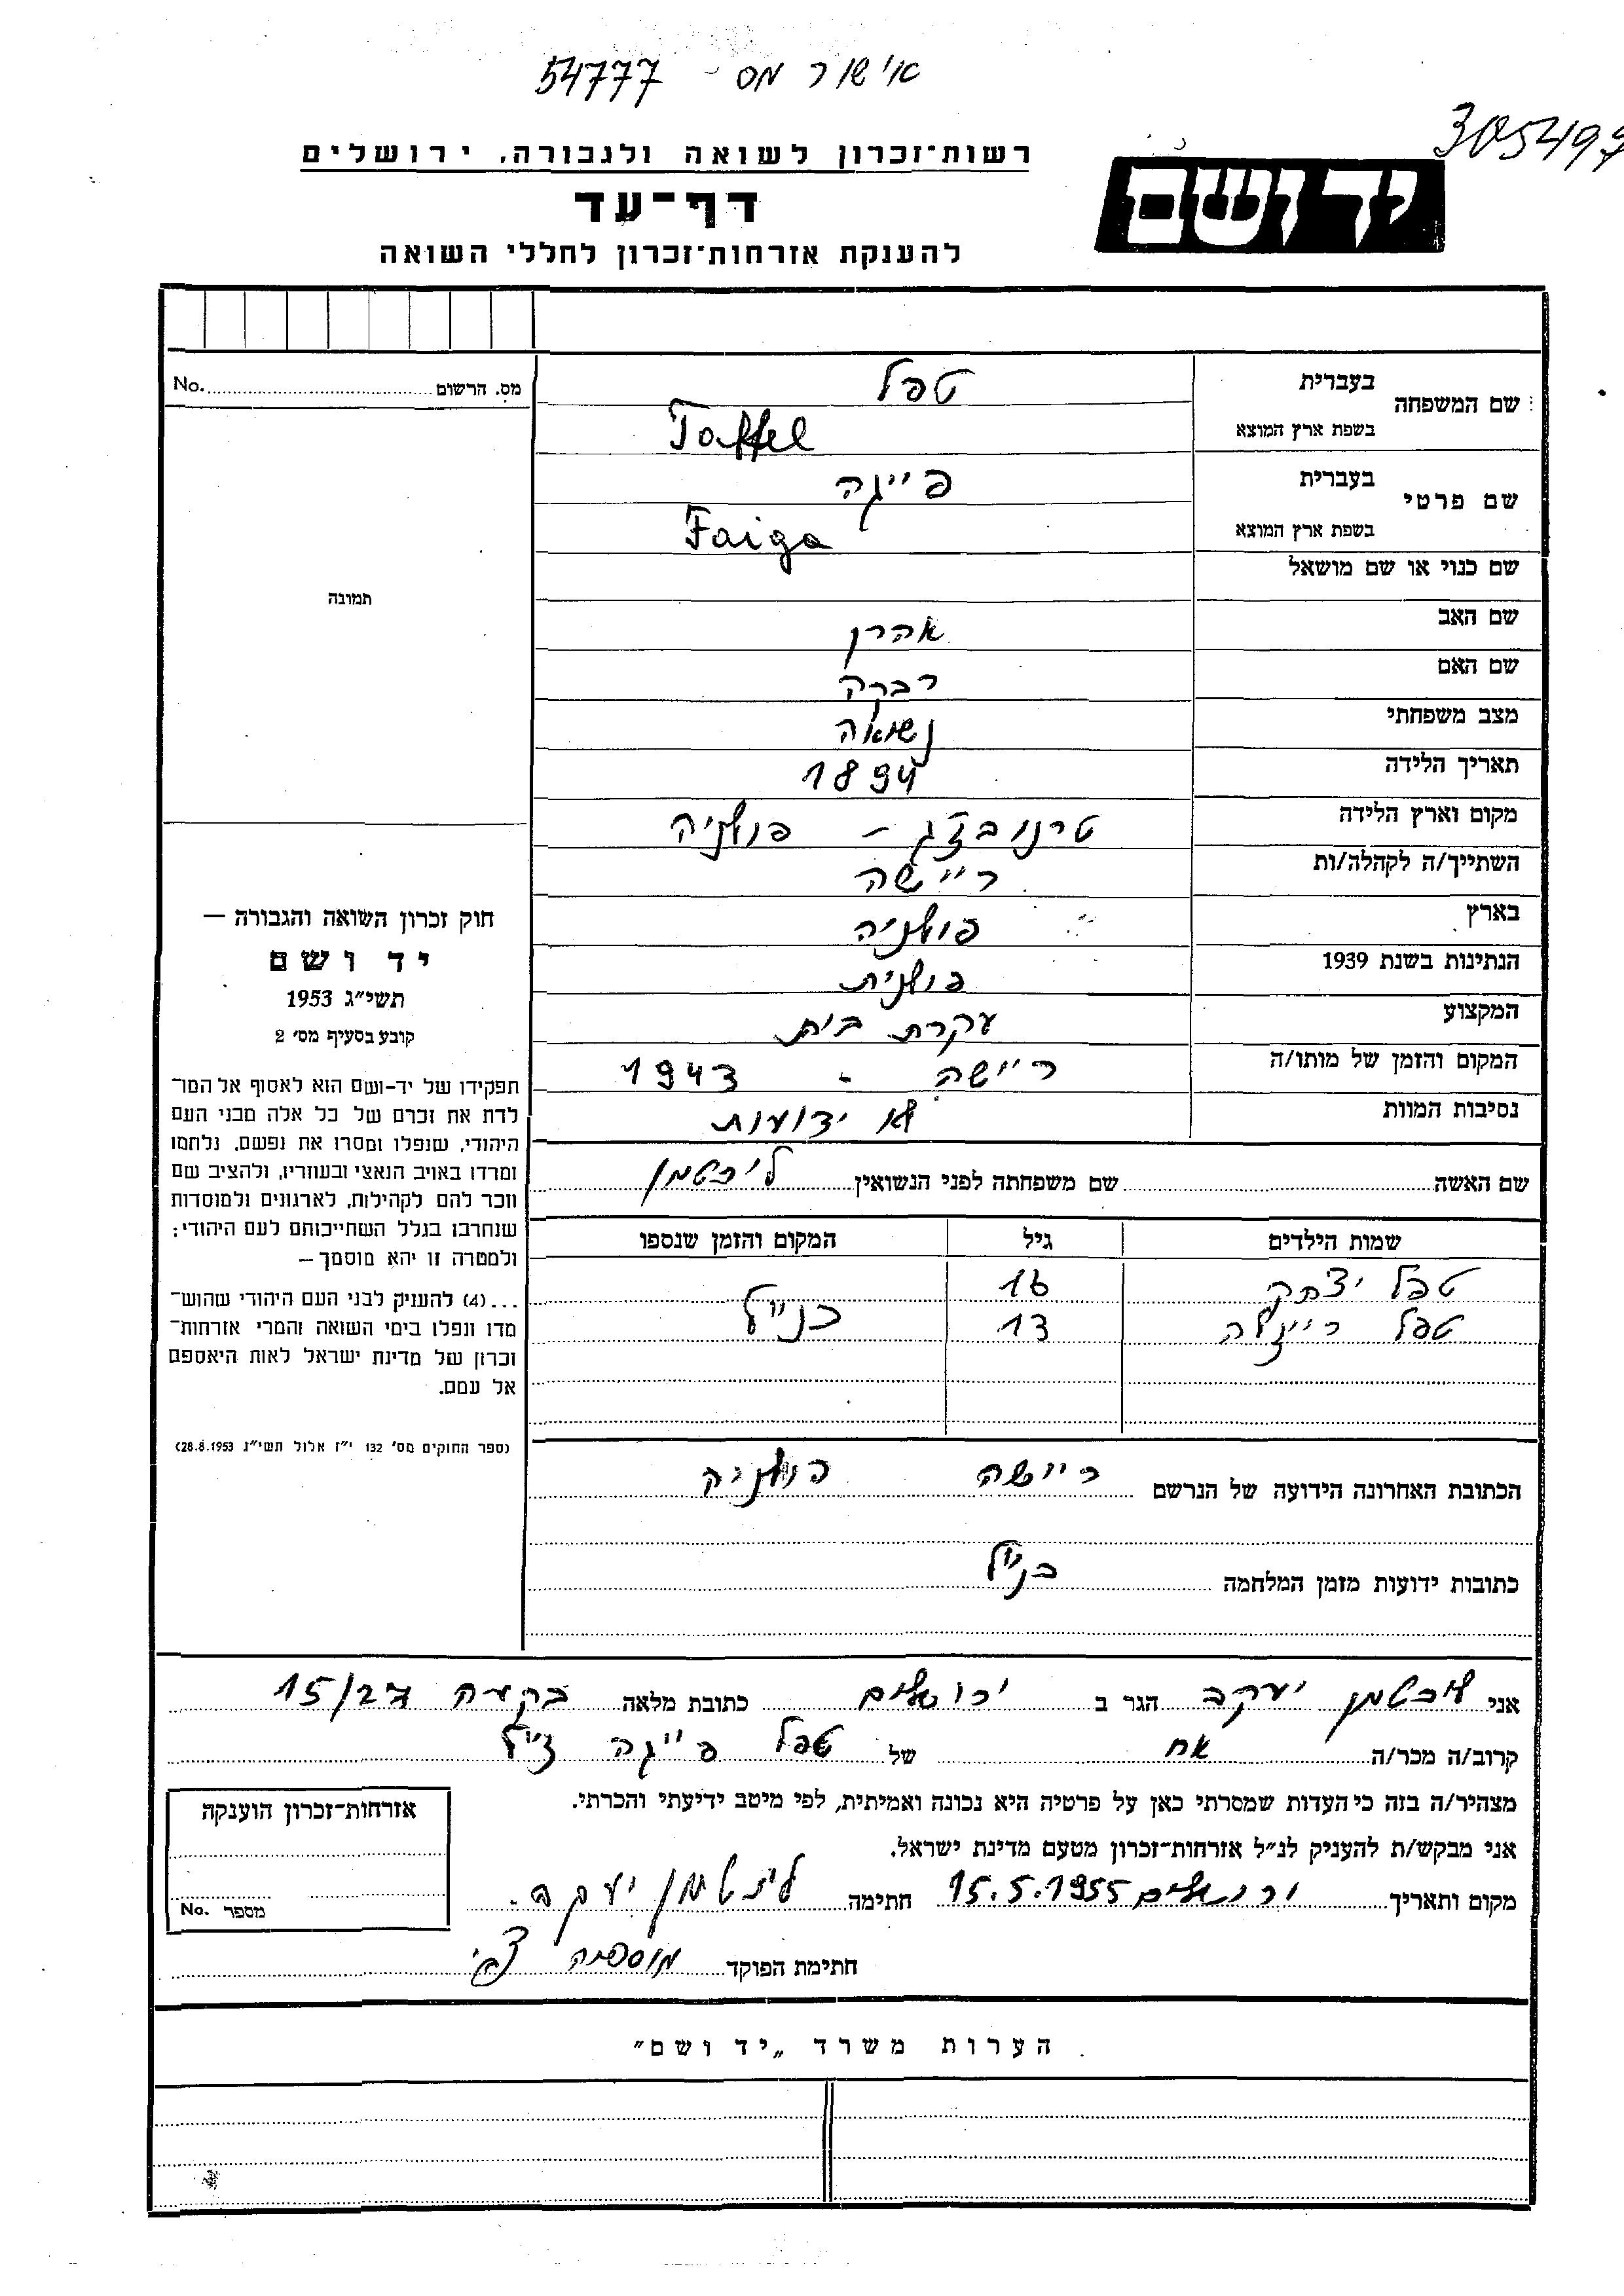 אישור מס - 54777
305497
רשות־זכרון לשואה ולגבורה, ירושלים
יד ושם
דף־עד
להענקת אזרחות־זכרון לחללי השואה
מס. הרשום No.
תמונה
שם המשפחה
בעברית טפל
בשפת ארץ המוצא Taffel
שם פרטי
בעברית פייגה
בשפת ארץ המוצא Faiga
שם כנוי או שם מושאל
שם האב אהרן
שם האם רבקה
מצב משפחתי נשואה
תאריך הלידה 1894
מקום וארץ הלידה טרנובז'ג - פולניה
השתייך/ה לקהלה/ות ריישה
בארץ פולניה
הנתינות בשנת 1939 פולנית
המקצוע עקרת בית
המקום והזמן של מותו/ה ריישה - 1943
נסיבות המוות לא ידועות
שם האשה שם משפחתה לפני הנשואין ליכטמן
שמות הילדים גיל המקום והזמן שנספו
טפל יצחק 16
טפל רייזלה 13 כנ"ל
הכתובת האחרונה הידועה של הנרשם ריישה פולניה
כתובות ידועות מזמן המלחמה כנ"ל
חוק זכרון השואה והגבורה —
יד ושם
תשי"ג 1953
קובע בסעיף מס' 2
תפקידו של יד-ושם הוא לאסוף אל המו־
לדת את זכרם של כל אלה מבני העם
היהודי, שנפלו ומסרו את נפשם, נלחמו
ומרדו באויב הנאצי ובעוזריו, ולהציב שם
וזכר להם לקהילות, לארגונים ולמוסדות
שנחרבו בגלל השתייכותם לעם היהודי;
ולמטרה זו יהא מוסמך —
...(4) להעניק לבני העם היהודי שהוש־
מדו ונפלו בימי השואה והמרי אזרחות־
זכרון של מדינת ישראל לאות היאספם
אל עמם.
(ספר החוקים מס' 132 י"ז אלול תשי"ג 28.8.1953)
אני ליכטמן יעקב הגר ב ירושלים כתובת מלאה בקעה 15/27
קרוב/ה מכר/ה אח של טפל פייגה ז"ל
מצהיר/ה בזה כי העדות שמסרתי כאן על פרטיה היא נכונה ואמיתית, לפי מיטב ידיעתי והכרתי.
אני מבקש/ת להעניק לנ"ל אזרחות־זכרון מטעם מדינת ישראל.
מקום ותאריך ירושלים 15.5.1955 חתימה ליכטמן יעקב.
חתימת הפוקד
אזרחות־זכרון הוענקה
מספר No.
הערות משרד „יד ושם"